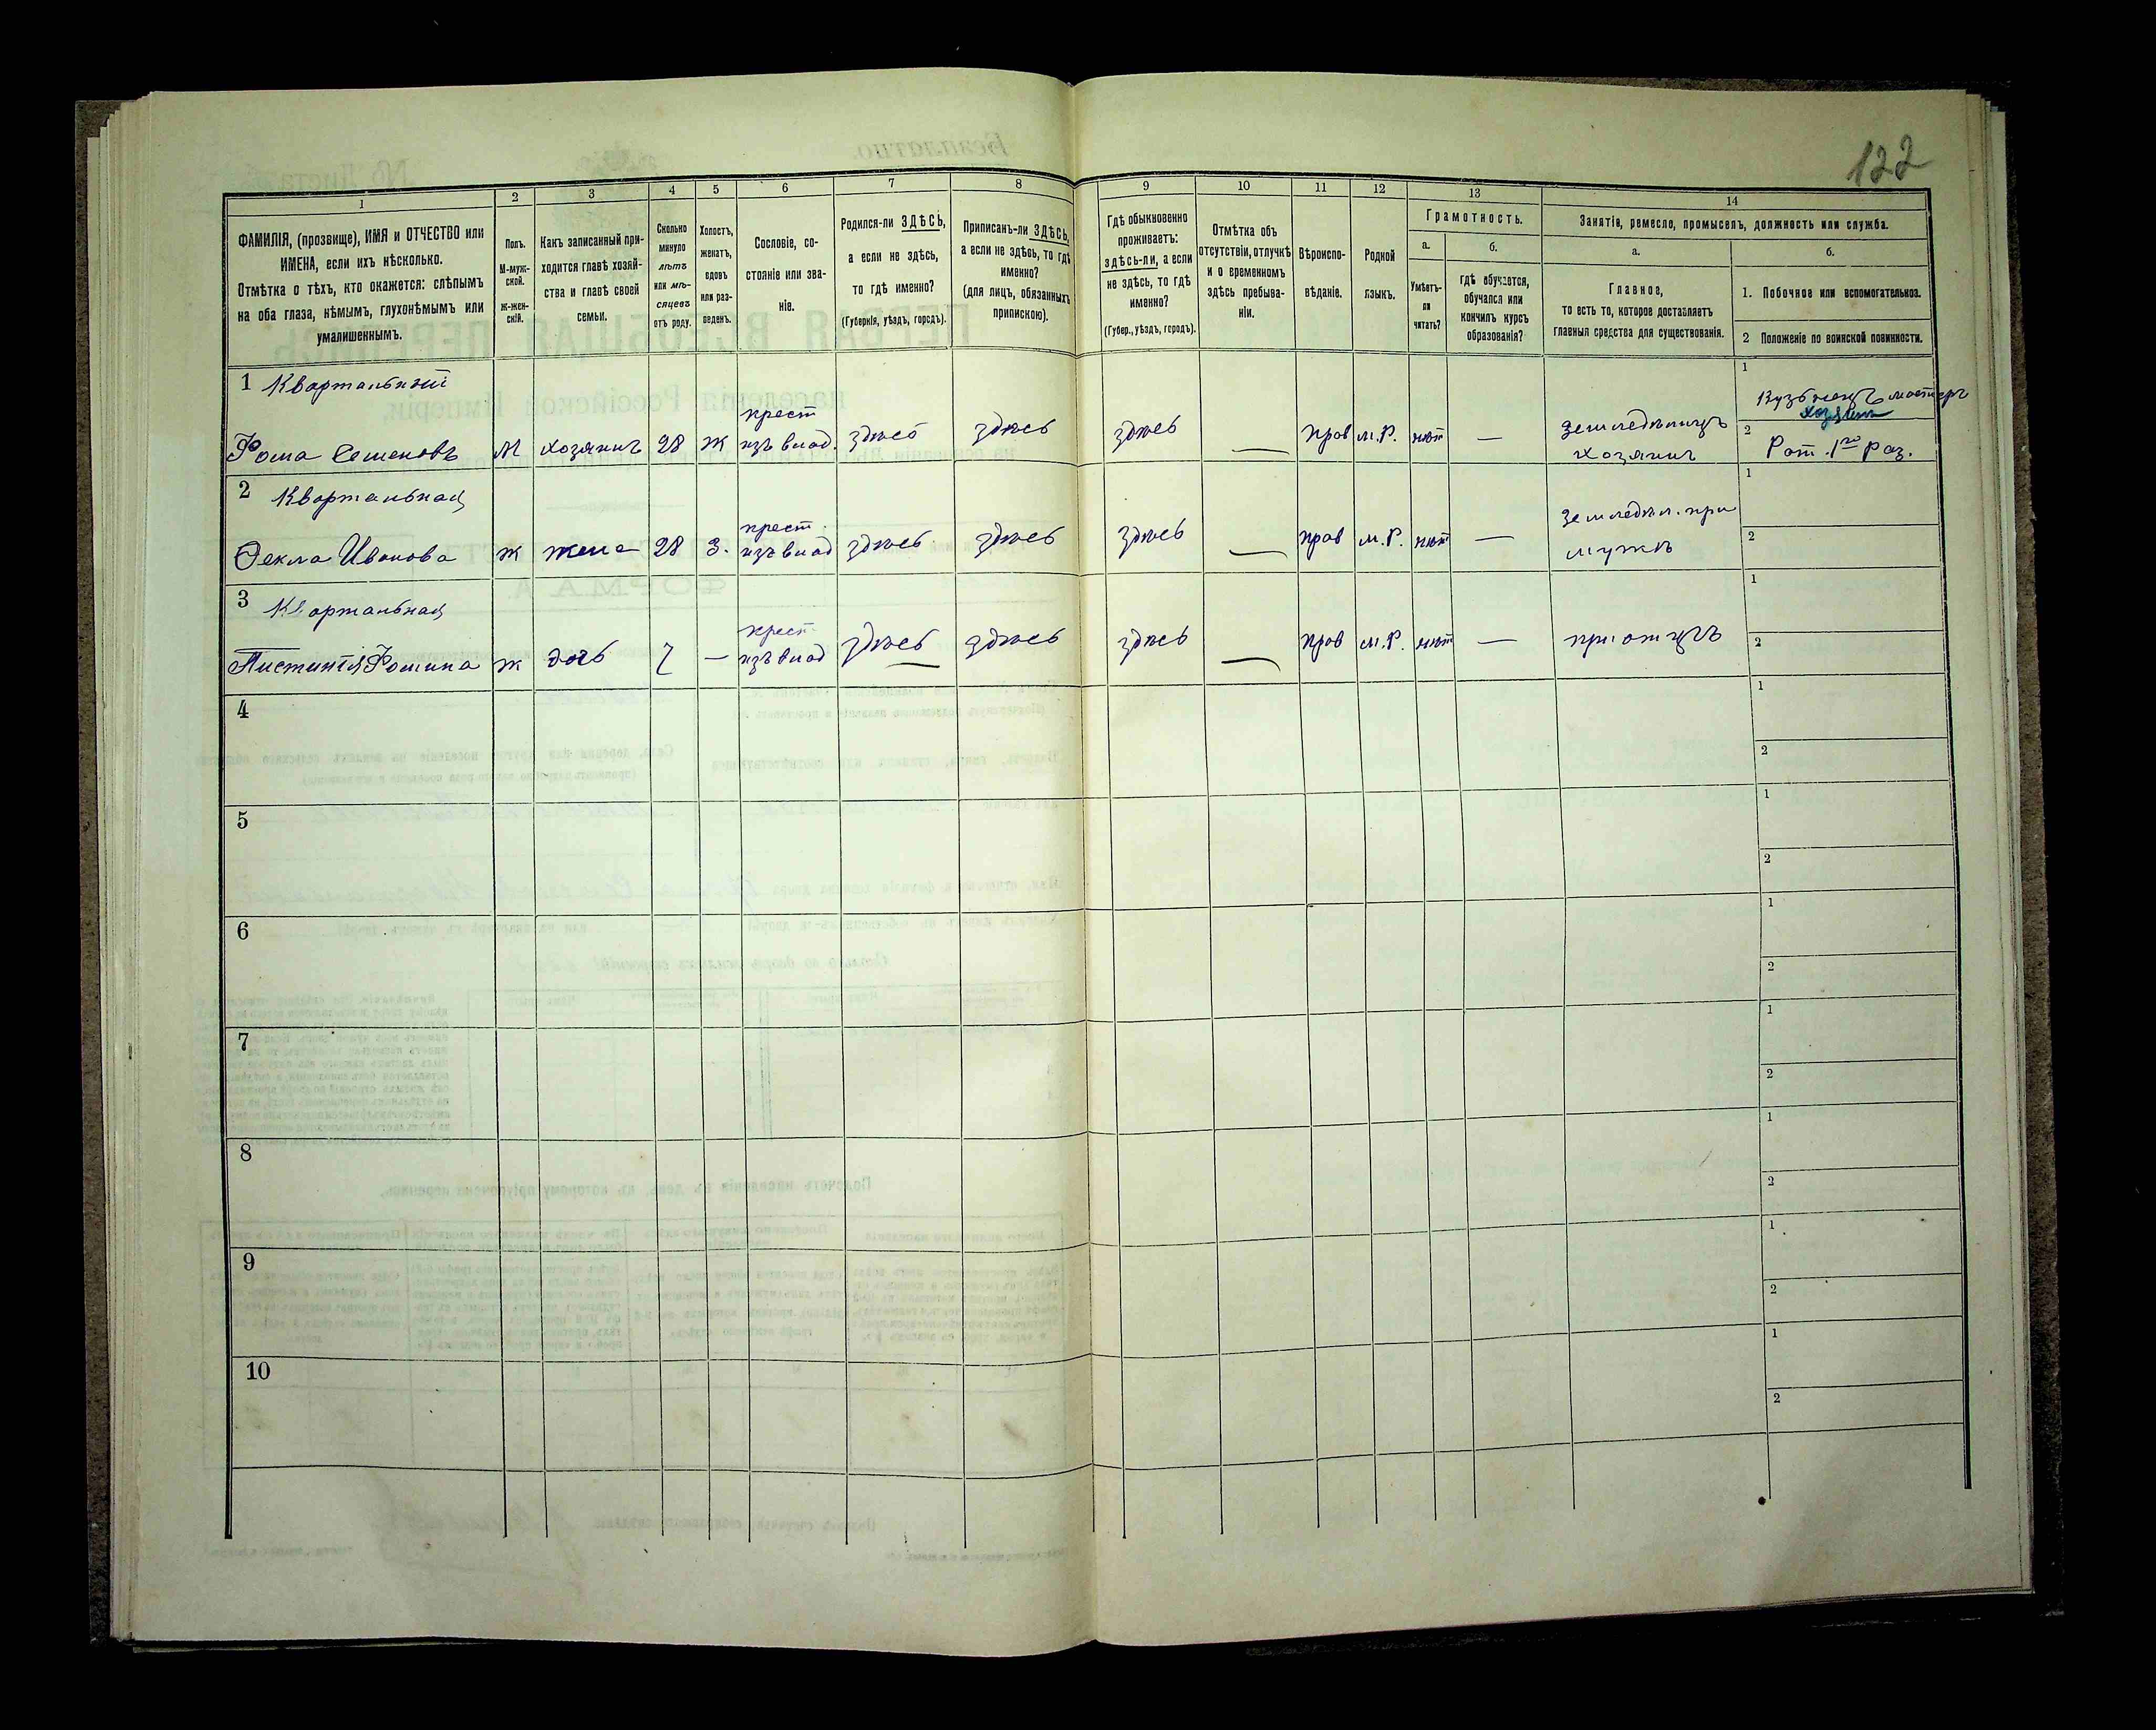 122
1
2
3
4
5
6
7
8
9
10
11
12
13
14
ФАМИЛІЯ, (прозвище), ИМЯ и ОТЧЕСТВО или
ИМЕНА, если ихъ нѣсколько.
Отмѣтка о тѣхъ, кто окажется: слѣпымъ
на оба глаза, нѣмымъ, глухонѣмымъ или
умалишеннымъ.
Полъ.
М-муж-
ской.
Ж-жен-
скій.
Какъ записанный при-
ходится главѣ хозяй-
ства и главѣ своей
семьи.
Сколько
минуло
лѣтъ
или мѣ-
сяцевъ
отъ роду.
Холостъ,
женатъ,
вдовъ
или раз-
веденъ.
Сословіе, со-
стояніе или зва-
ніе.
Родился-ли ЗДѢСЬ,
а если не здѣсь,
то гдѣ именно?
(Губернія, уѣздъ, городъ).
Приписанъ-ли ЗДѢСЬ,
а если не здѣсь, то гдѣ
именно?
(для лицъ, обязанныхъ
припискою).
Гдѣ обыкновенно
проживаетъ:
здѣсь-ли, а если
не здѣсь, то гдѣ
именно?
(Губер., уѣздъ, городъ).
Отмѣтка объ
отсутствіи, отлучкѣ
и о временномъ
здѣсь пребыва-
ніи.
Вѣроиспо-
вѣданіе.
Родной
языкъ.
Грамотность.
а.
Умѣетъ-
ли
читать?
б.
гдѣ обучается,
обучался или
кончилъ курсъ
образованія?
Занятія, ремесло, промыселъ, должность или служба.
а.
Главное,
то есть то, которое доставляетъ
главныя средства для существованія.
б.
1. Побочное или вспомогательное.
2 Положеніе по воинской повинности.
1 Квартальный
Фома Семеновъ М хозяинъ 28 Ж крест
изъ влад. здѣсь здѣсь здѣсь — прав м.р. нѣтъ — земледѣлецъ
хозяинъ
1 Кузнецъ мастеръ
хозяинъ
2 Рат. 1го раз.
2 Квартальная
Фекла Иванова ж жена 28 З. крест.
изъ влад здѣсь здѣсь здѣсь — прав м.р. нѣт — земледѣл. при
мужѣ
1
2
3 Квартальная
Пистинія Фомина ж дочь 7 — крест
изъ влад здѣсь здѣсь здѣсь — прав м.р. нѣт — при отцѣ
1
2
4
1
2
5
1
2
6
1
2
7
1
2
8
1
2
9
1
2
10
1
2